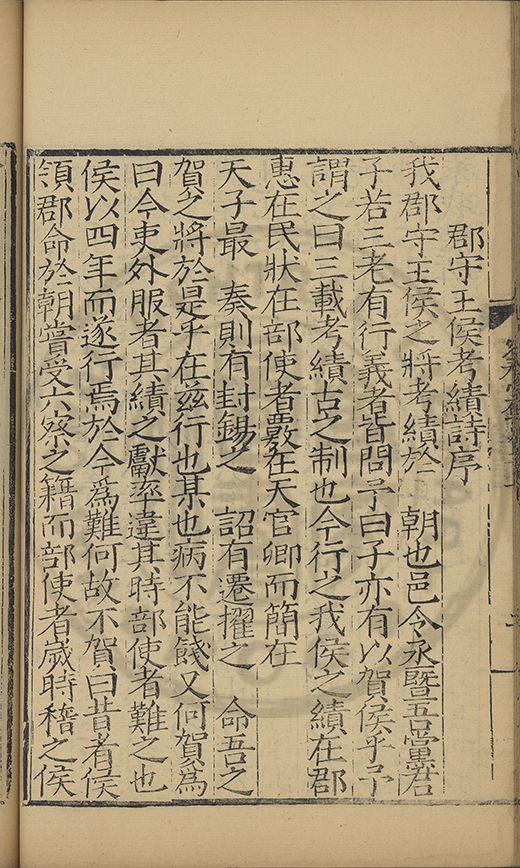 郡守王侯考績詩序
我郡守王侯之將考績於 朝也邑令丞暨吾黨君
子若三老有行義者皆問予曰子亦有以賀侯乎予
謂之曰三載考績古之制也今行之我侯之績在郡
惠在民狀在部使者覈在天官卿而簡在
天子最 奏則有封錫之 詔有遷擢之 命吾之
賀之將於是乎在兹行也某也病不能餞又何賀爲
曰今吏外服者其績之獻率違其時部使者難之也
侯以四年而遂行焉於今爲難何故不賀曰昔者侯
領郡命於朝嘗受六察之籍而部使者歲時稽之侯